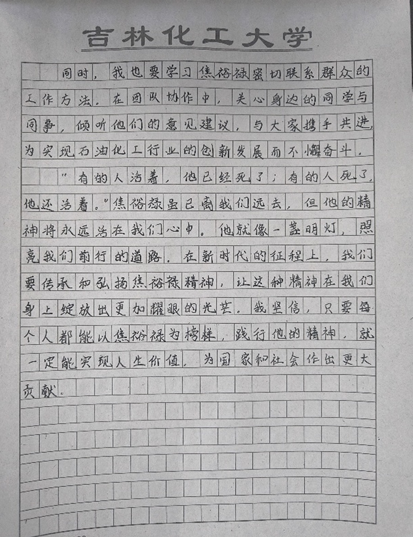 吉林化工大学
同时，我也要学习焦裕禄密切联系群众的
工作方法，在团队协作中，关心身边的同学与
同事，倾听他们的意见建议，与大家携手共进
为实现石油化工行业的创新发展而不懈奋斗。
“有的人活着，他已经死了；有的人死了，
他还活着。”焦裕禄虽已离我们远去，但他的精
神将永远活在我们心中。他就像一盏明灯，照
亮我们前行的道路。在新时代的征程上，我们
要传承和弘扬焦裕禄精神，让这种精神在我们
身上绽放出更加耀眼的光芒。我坚信，只要每
个人都能以焦裕禄为榜样，践行他的精神，就
一定能实现人生价值，为国家和社会作出更大
贡献.